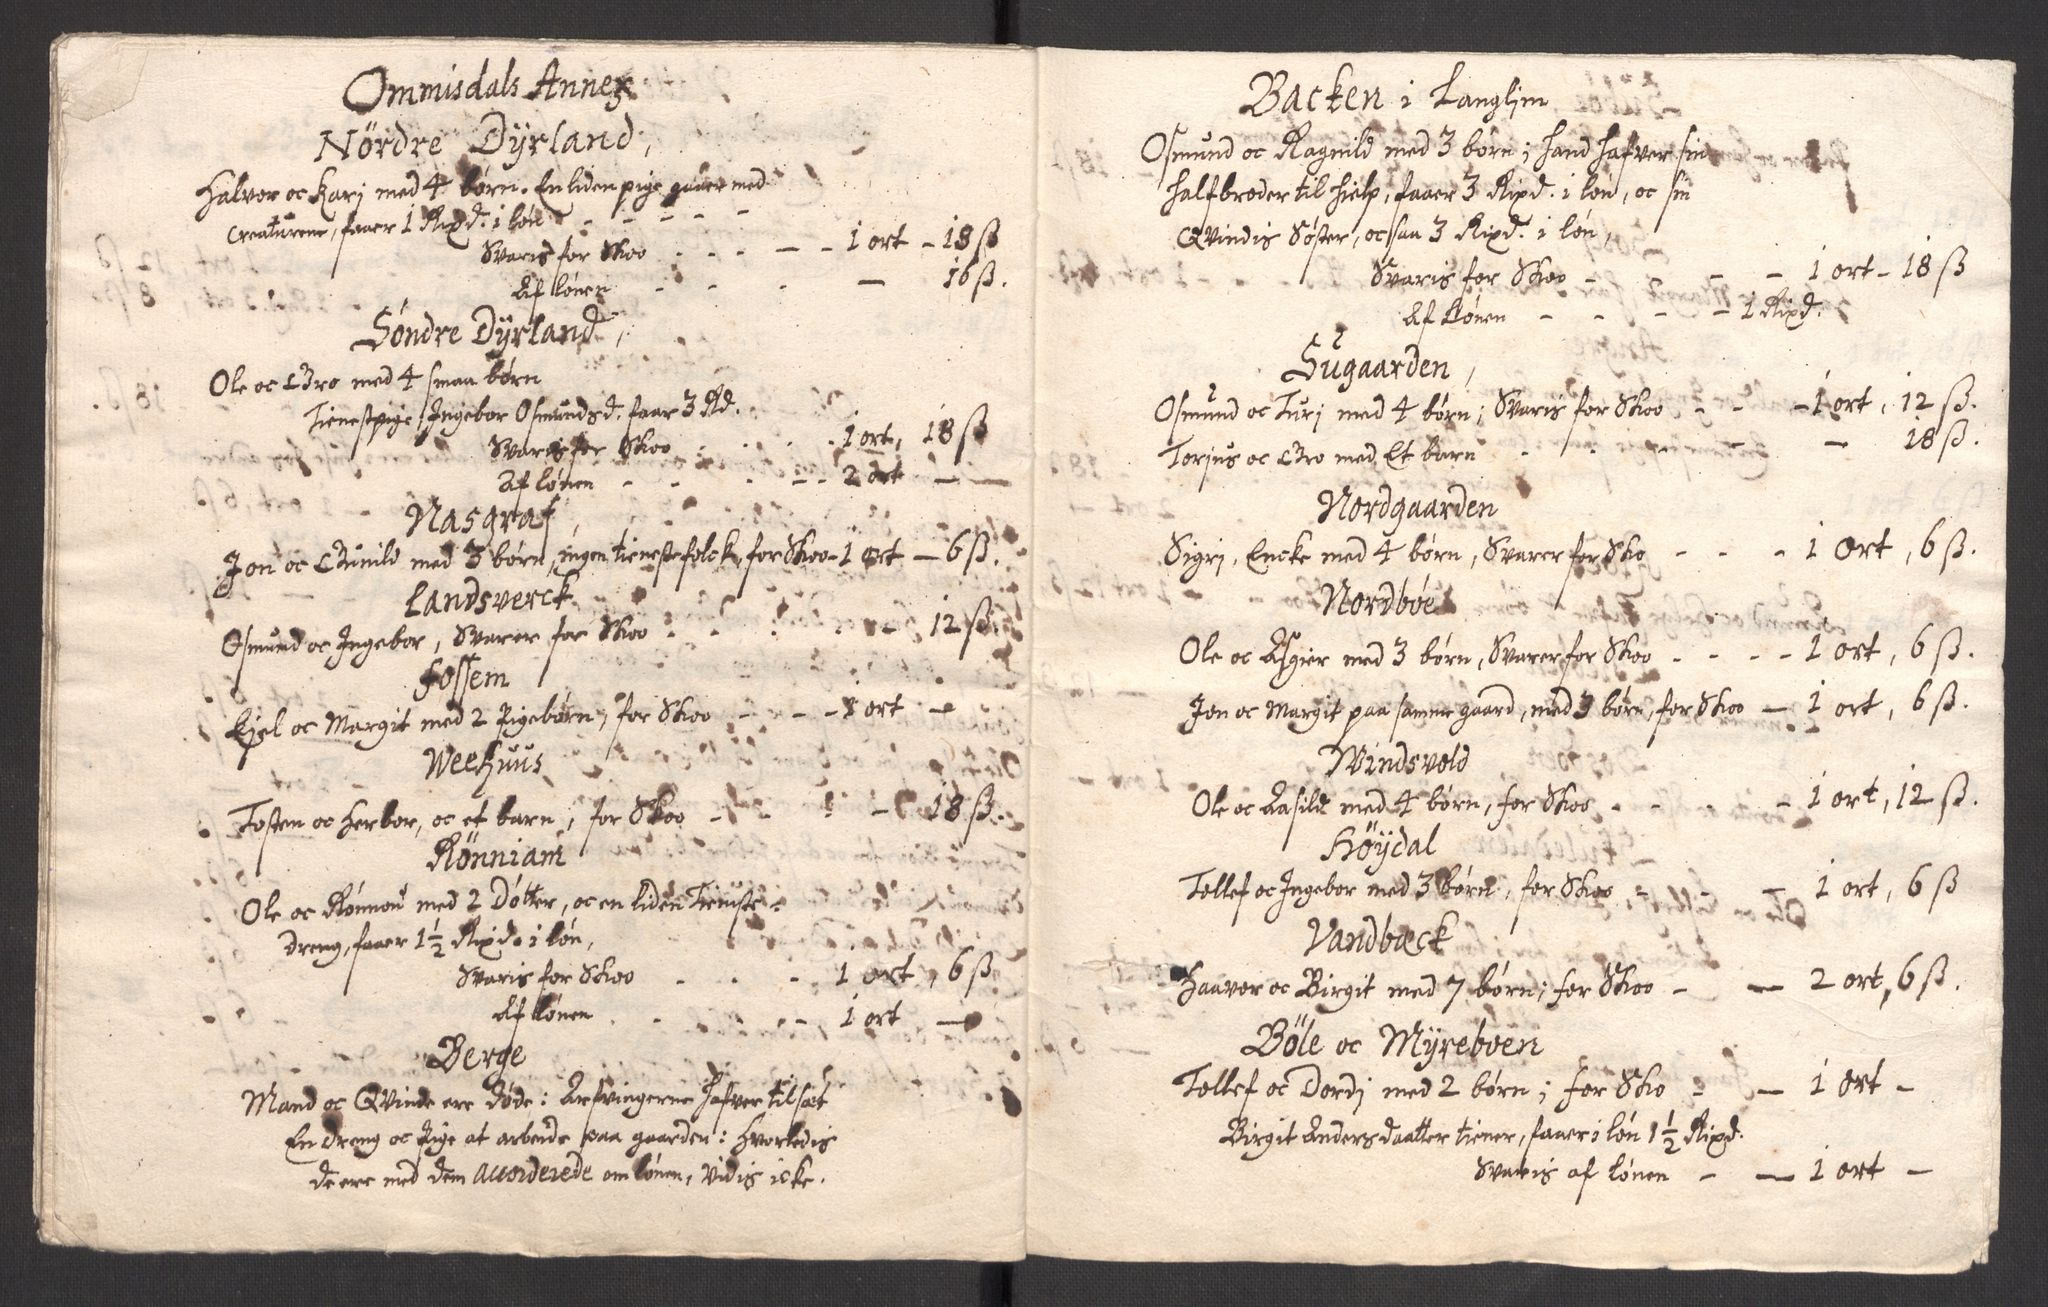 Ommisdals Annex
Nördre Dÿrland,
Halvor oc Karj med 4 børn. En liden pige gaaer med
Creaturene, faaer 1 Rixd. i løn - - - - -
Svaris for Skoo - - - - 1 ort - 18 ß
Af lønen - - - 16 ß.
Söndre Dÿrland,
Ole oc Gro med 4 smaa børn
Tienestpige, Ingebor Osmundsd. faar 3 Rd.
Svaris for Skoo - - - 1 ort, 18 ß
Af lønen - - - - 2 ort - -
Nasgraf,
Jon oc Gunild med 3 børn, ingen tienestefolck, for Skoo - 1 ort - 6 ß.
Landsverck
Osmund oc Ingebor, Svarer for Skoo - - - - 12 ß.
Fossem
Kjel oc Margit med 2 Pigebørn, for Skoo - - - 1 ort -
Weehuus
Tosten oc Herbor, oc et barn, for Skoo - - - - 18 ß.
Rönniam
Ole oc Rønnou med 2 Døtter, oc en liden Tieniste-
dreng, faaer 1½ Rixd. i løn,
Svaris for Skoo - - - 1 ort, 6 ß
Af lønen - - - - 1 ort -
Berge
Mand oc Qvinde ere døde: Arfvingerne hafver tilsæt
En dreng oc Pige at arbeide paa gaarden: hvorledis
de ere med dem accorderede om lønen, vidis icke.
Backen i Langlim
Osmund oc Ragnild med 3 børn; hand hafver sin
halfbroder til hielp, faaer 3 Rixd. i løn, oc sin
Qvindis Søster, ocsaa 3 Rixd. i løn,
Svaris for Skoo - - - 1 ort - 18 ß
Af Lønen - - - - 1 Rixd.
Sugaarden,
Osmund oc Turj med 4 børn; Svaris for Skoo - - - 1 ort, 12 ß.
Torjus oc Gro med Et barn - - - - - 18 ß.
Nordgaarden
Sigrj, Encke med 4 børn, Svarer for Sko - - - 1 Ort, 6 ß.
Nordböe
Ole oc Asgier med 3 børn, Svarer for Skoo - - - - 1 ort, 6 ß.
Jon oc Margit paa samme gaard, med 3 børn, for Skoo - 1 ort, 6 ß.
Windsvold
Ole oc Aasild med 4 børn, for Skoo - - - - 1 ort, 12 ß.
Höÿdal
Tollef oc Ingebor med 3 børn, for Skoo - - - 1 ort, 6 ß
Vandbæck
Haavor oc Birgit med 7 børn; for Skoo - - 2 ort, 6 ß.
Böle oc Mÿreböen
Tollef oc Dordj med 2 børn; for Sko - - 1 Ort -
Birgit Andersdaatter tiener, faaer i løn 1½ Rixd.
Svaris af lønen - - 1 ort -